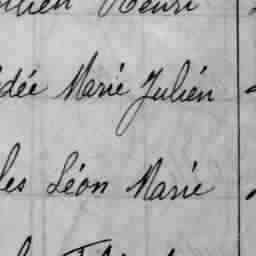 Henri
dée Marie Julién
les Léon Marie